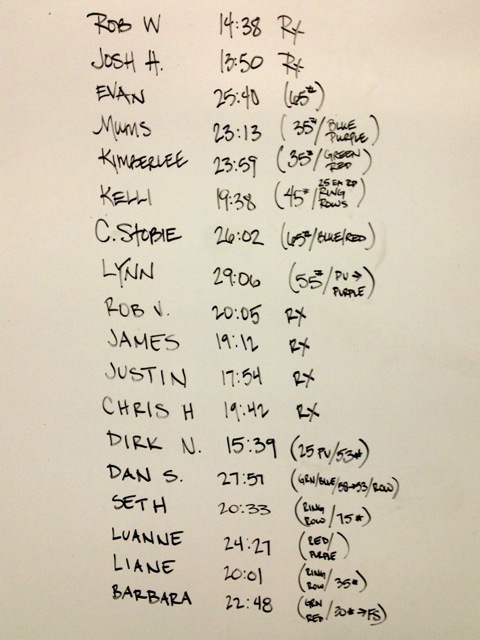 ROB W 14:38 RX
JOSH H. 13:50 RX
EVAN 25:40 (65#)
MUMS 23:13 (35#/BLUE PURPLE)
KIMBERLEE 23:59 (35#/GREEN RED)
KELLI 19:38 (45#/25 EA RD RING ROWS)
C. STOBIE 26:02 (65#/BLUE/RED)
LYNN 29:06 (55#/PU → PURPLE)
ROB V. 20:05 RX
JAMES 19:12 RX
JUSTIN 17:54 RX
CHRIS H 19:42 RX
DIRK N. 15:39 (25 PU/53#)
DAN S. 27:57 (GRN/BLUE/58→53/ROW)
SETH 20:33 (RING ROW/75#)
LUANNE 24:27 (RED/PURPLE)
LIANE 20:01 (RING ROW/35#)
BARBARA 22:48 (GRN RED/30#→FS)